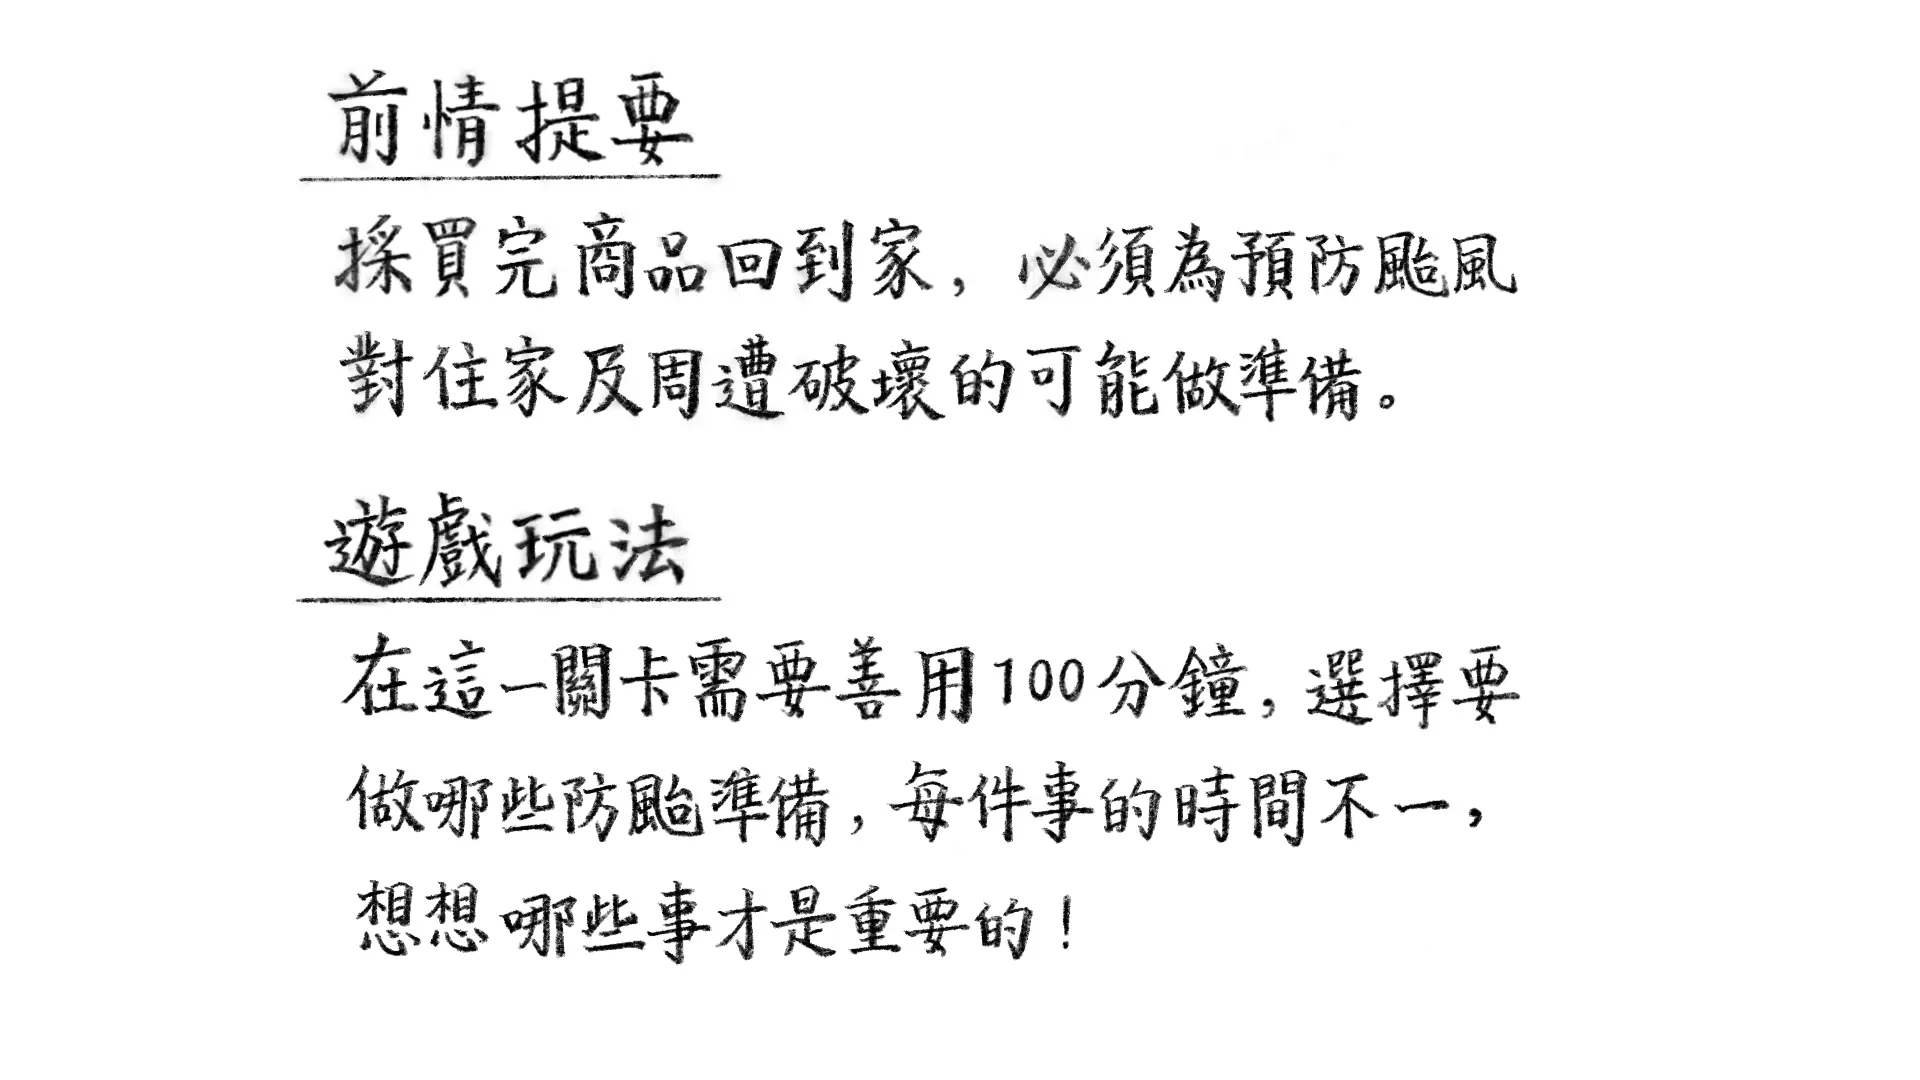 前情提要
採買完商品回到家，必須為預防颱風
對住家及周遭破壞的可能做準備。
遊戲玩法
在這一關卡需要善用100分鐘，選擇要
做哪些防颱準備，每件事的時間不一，
想想哪些事才是重要的！